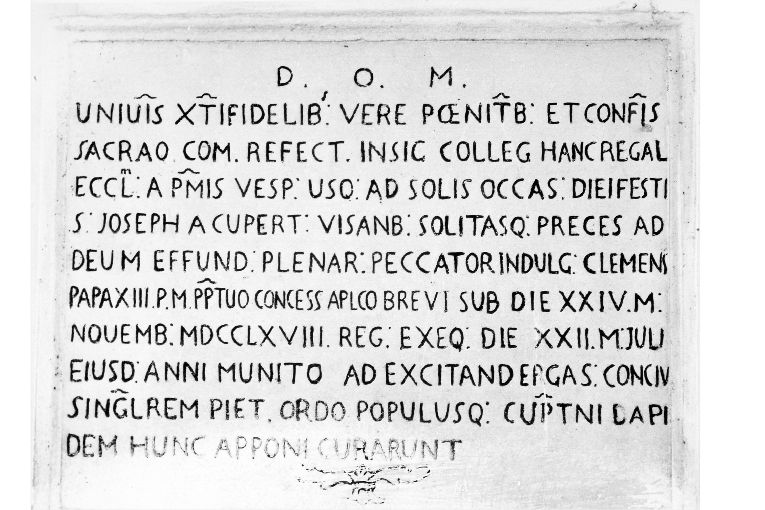 D. O. M.
UNIUIS XTIFIDELIB: VERE POENITB: ET CONFIS
SACRAO COM. REFECT. INSIG COLLEG HANC REGAL
ECCL: A PMIS VESP: USQ: AD SOLIS OCCAS: DIEI FESTI
S: JOSEPH A CUPERT: VISANB: SOLITASQ: PRECES AD
DEUM EFFUND: PLENAR: PECCATOR INDULG: CLEMENS
PAPA XIII. P. M. PPTUO CONCESS APLCO BREVI SUB DIE XXIV. M:
NOUEMB: MDCCLXVIII. REG: EXEQ: DIE XXII. M: JULI
EIUSD: ANNI MUNITO AD EXCITAND ERGA S: CONCIV
SINGLREM PIET. ORDO POPULUSQ: CUPTNI LAPI
DEM HUNC APPONI CURARUNT